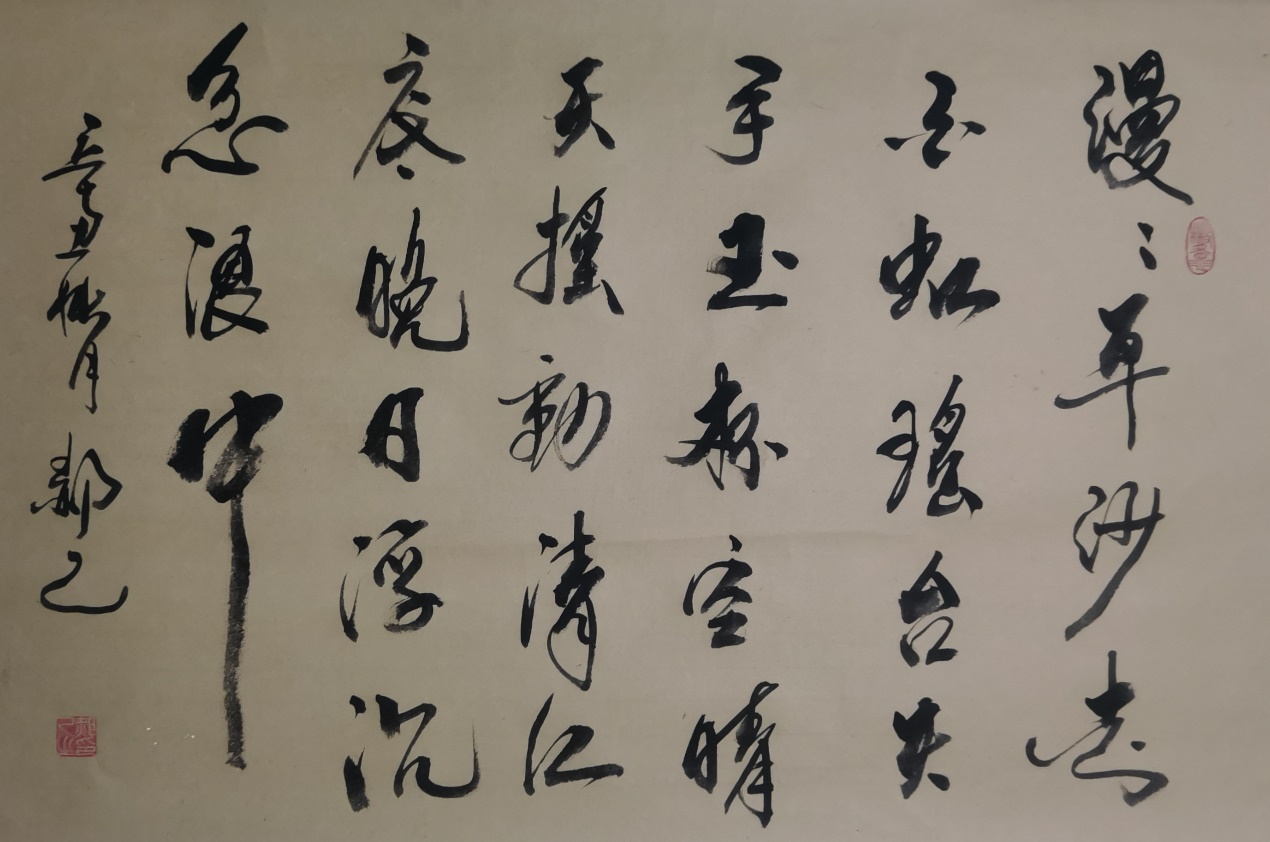 漫〻平沙走
白虹瑶台失
手玉杯空晴
天搖動清江
底晚日浮沉
急浪中
辛丑月郝乙